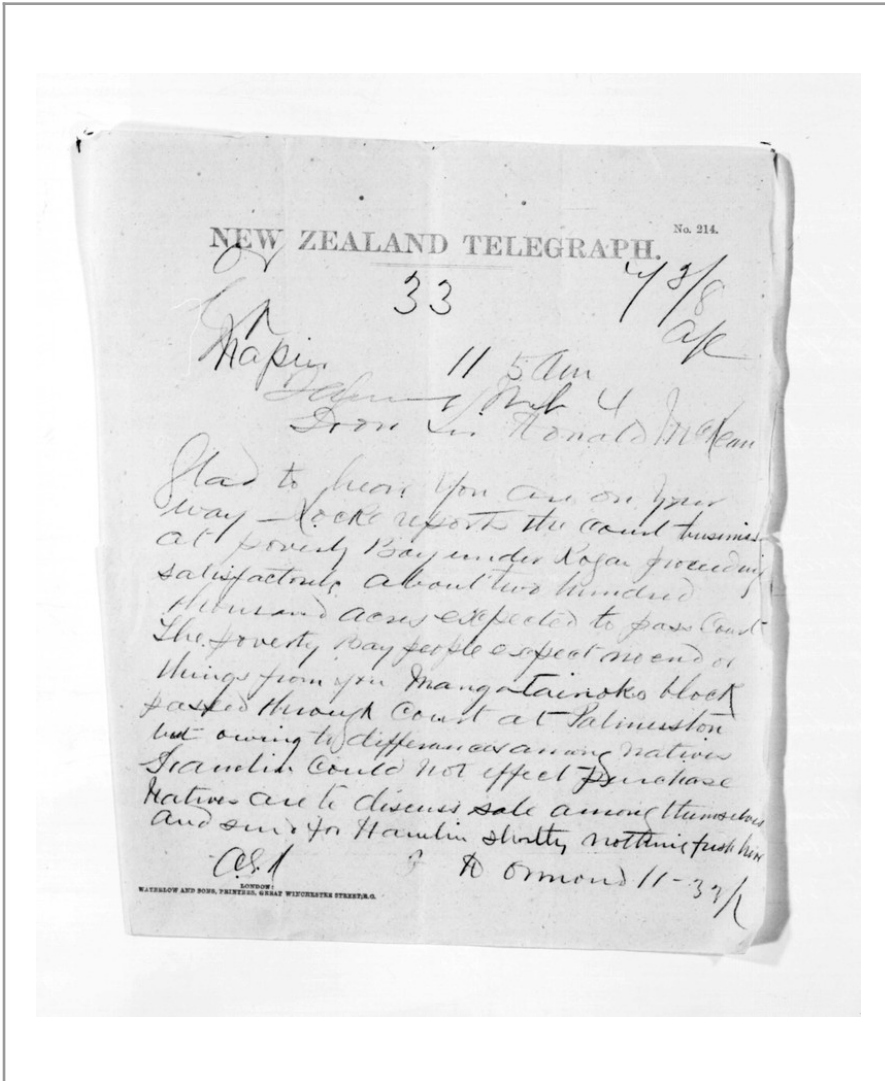 No. 214.
NEW ZEALAND TELEGRAPH.
33
Napier 11 5 am
4
Hon Sir Donald McLean
Glad to hear you are on your
way – Locke reports the Court business
at poverty Bay under Rogan proceeding
satisfactorily about two hundred
thousand acres expected to pass Court
The poverty Bay people expect no end of
things from you Mangatainoko block
passed through Court at Palmerston
but owing to differences among natives
Hamlin could not effect purchase
Natives are to discuss sale among themselves
and send for Hamlin shortly nothing fresh here
Ormond 11-
LONDON:
WATERLOW AND SONS, PRINTERS, GREAT WINCHESTER STREET, E.C.